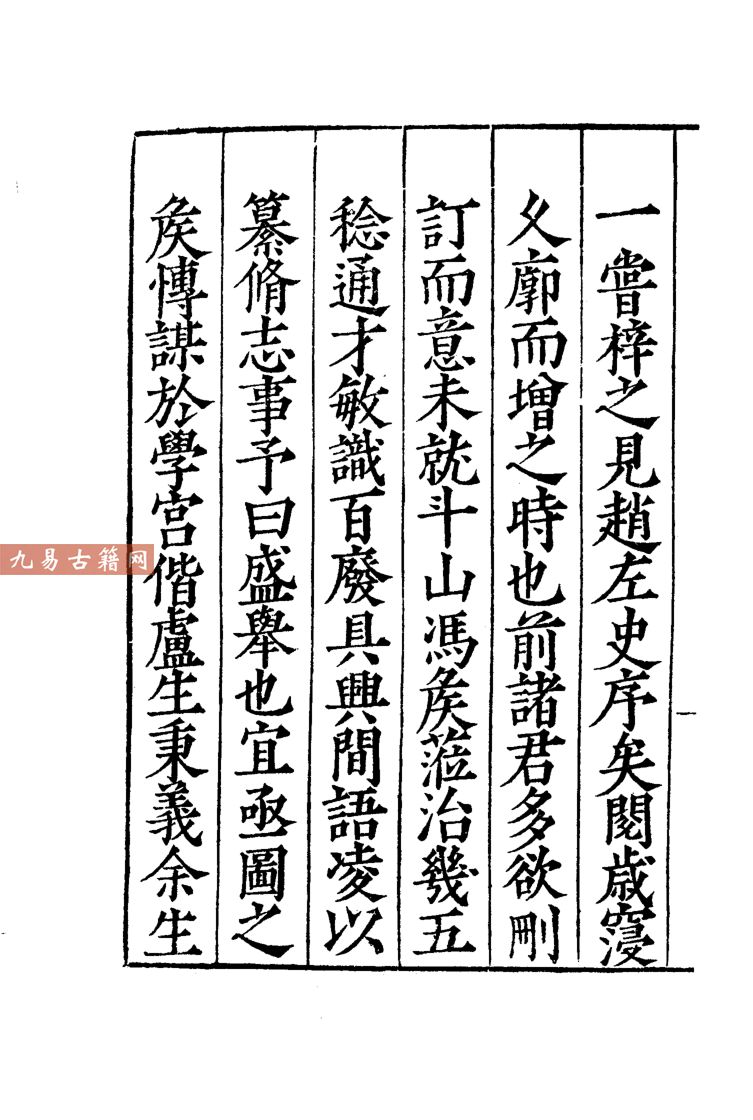 一甞梓之見趙左史序矣閱歳寖
久廓而增之時也前諸君多欲刪
訂而意未就斗山馮矦蒞治幾五
稔通才敏識百廢具興間語凌以
纂脩志事予曰盛舉也宜亟圖之
矦慱謀於學宮偕盧生秉義余生
九易古籍网